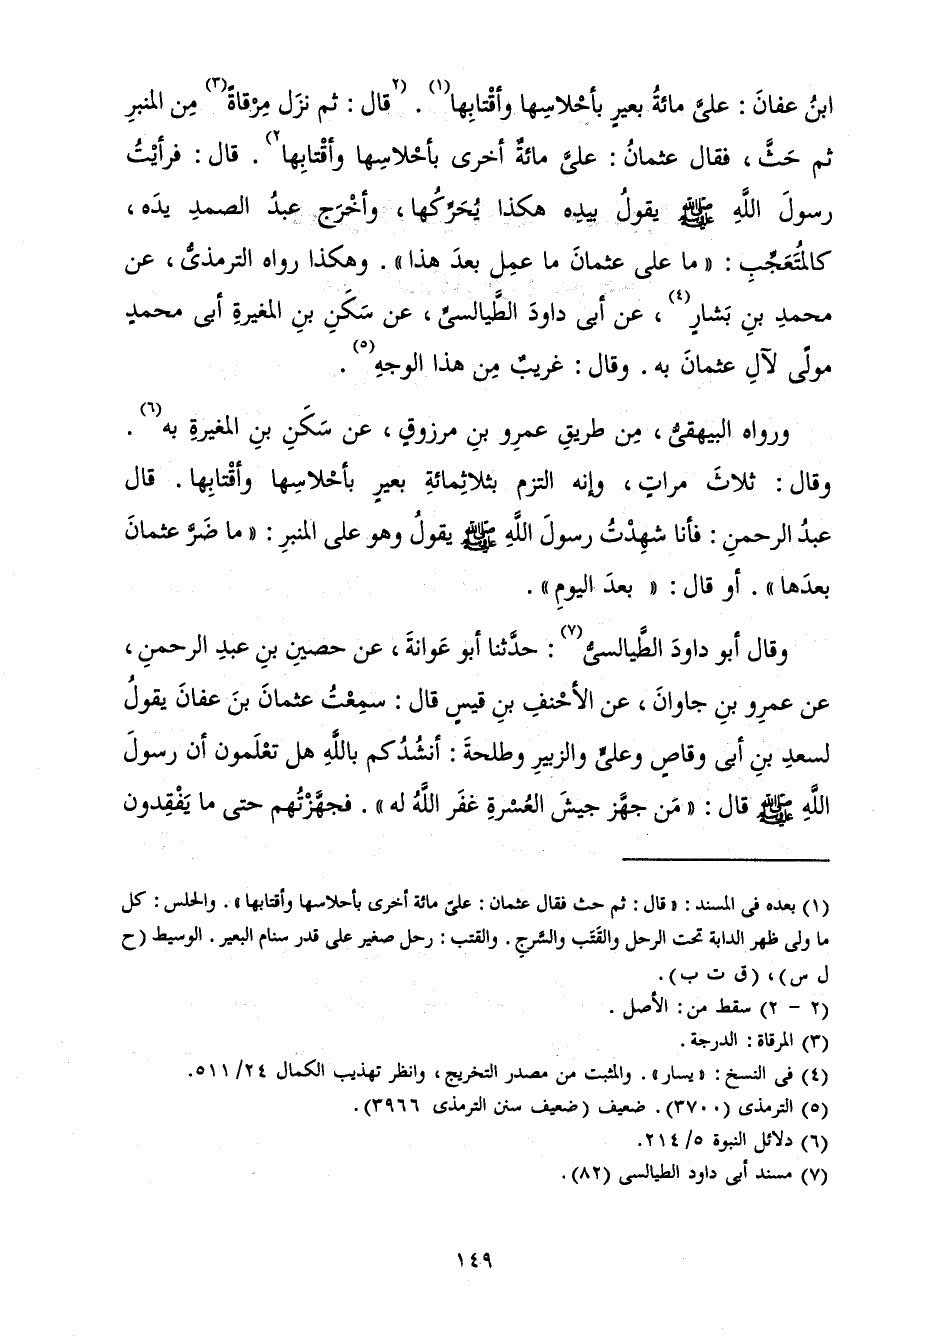 ابنُ عفانَ : علىَّ مائةُ بعيرٍ بأحْلاسِها وأقْتابِها(١) . (٢قال : ثم نزَل مِرْقاةً(٣) مِن المنبرِ
ثم حَثَّ ، فقال عثمانُ : علىَّ مائةٌ أخرى بأحْلاسِها وأقْتابِها٢) . قال : فرأيْتُ
رسولَ اللَّهِ ﷺ يقولُ بيدِه هكذا يُحَرِّكُها، وأخْرَج عبدُ الصمدِ يدَه ،
كالمُتَعَجِّبِ : « ما على عثمانَ ما عمِل بعدَ هذا» . وهكذا رواه الترمذىُّ ، عن
محمدِ بنِ بَشارٍ(٤) ، عن أبى داودَ الطَّيالسىِّ ، عن سَكَنِ بنِ المغيرةِ أبى محمدٍ
مولًى لآلِ عثمانَ به . وقال : غريبٌ مِن هذا الوجهِ(٥) .
ورواه البيهقىُّ ، مِن طريقِ عمرِو بنِ مرزوقٍ ، عن سَكَنِ بنِ المغيرةِ به(٦) .
وقال : ثلاثَ مراتٍ ، وإنه التزم بثلاثِمائةِ بعيرٍ بأحْلاسِها وأقْتابِها . قال
عبدُ الرحمنِ : فأنا شهِدْتُ رسولَ اللَّهِ ﷺ يقولُ وهو على المنبرِ : « ما ضَرَّ عثمانَ
بعدَها» . أو قال : « بعدَ اليومِ» .
وقال أبو داودَ الطَّيالسىُّ(٧) : حدَّثنا أبو عَوانةَ ، عن حصينِ بنِ عبدِ الرحمنِ ،
عن عمرِو بنِ جاوانَ ، عن الأحْنفِ بنِ قيسٍ قال : سمِعْتُ عثمانَ بنَ عفانَ يقولُ
لسعدِ بنِ أبى وقاصٍ وعلىٍّ والزبيرِ وطلحةَ : أنشُدُكم باللَّهِ هل تعْلَمون أن رسولَ
اللَّهِ ﷺ قال : « مَن جهَّز جيشَ العُسْرةِ غفَر اللَّهُ له» . فجهَّزْتُهم حتى ما يَفْقِدون
(١) بعده فى المسند : « قال : ثم حث فقال عثمان : علىّ مائة أخرى بأحلاسها وأقتابها» . والحلس : كل
ما ولى ظهر الدابة تحت الرحل والقَتَب والسَّرج . والقتب : رحل صغير على قدر سنام البعير . الوسيط (ح
ل س) ، (ق ت ب) .
(٢ - ٢) سقط من : الأصل .
(٣) المرقاة : الدرجة .
(٤) فى النسخ : « يسار» . والمثبت من مصدر التخريج ، وانظر تهذيب الكمال ٢٤/ ٥١١.
(٥) الترمذى (٣٧٠٠) . ضعيف (ضعيف سنن الترمذى ٣٩٦٦) .
(٦) دلائل النبوة ٥/ ٢١٤.
(٧) مسند أبى داود الطيالسى (٨٢) .
١٤٩